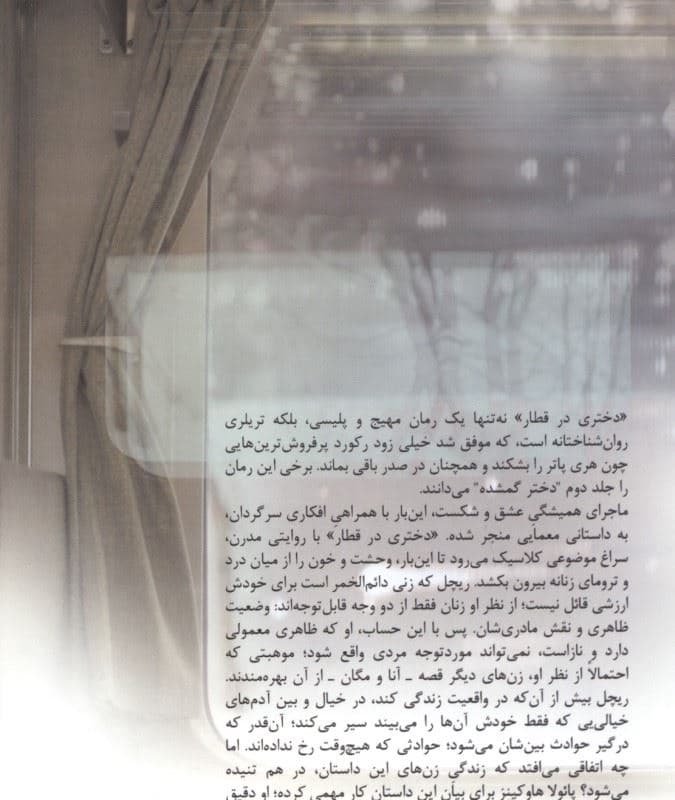 «دختری در قطار» نه‌تنها یک رمان مهیج و پلیسی، بلکه تریلری
روان‌شناختانه است، که موفق شد خیلی زود رکورد پرفروش‌ترین‌هایی
چون هری پاتر را بشکند و همچنان در صدر باقی بماند. برخی این رمان
را جلد دوم "دختر گمشده" می‌دانند.
ماجرای همیشگیِ عشق و شکست، این‌بار با همراهیِ افکاری سرگردان،
به داستانی معمایی منجر شده. «دختری در قطار» با روایتی مدرن،
سراغ موضوعی کلاسیک می‌رود تا این‌بار، وحشت و خون را از میان درد
و ترومای زنانه بیرون بکشد. ریچل که زنی دائم‌الخمر است برای خودش
ارزشی قائل نیست؛ از نظر او زنان فقط از دو وجه قابل‌توجه‌اند: وضعیت
ظاهری و نقش مادری‌شان. پس با این حساب، او که ظاهری معمولی
دارد و نازاست، نمی‌تواند موردتوجه مردی واقع شود؛ موهبتی که
احتمالاً از نظر او، زن‌های دیگر قصه ـ آنا و مگان ـ از آن بهره‌مندند.
ریچل بیش از آن‌که در واقعیت زندگی کند، در خیال و بین آدم‌های
خیالی‌یی که فقط خودش آن‌ها را می‌بیند سیر می‌کند؛ آن‌قدر که
درگیر حوادث بین‌شان می‌شود؛ حوادثی که هیچ‌وقت رخ نداده‌اند. اما
چه اتفاقی می‌افتد که زندگی زن‌های این داستان، در هم تنیده
می‌شود؟ پائولا هاوکینز برای بیان این داستان کار مهمی کرده؛ او دقیق